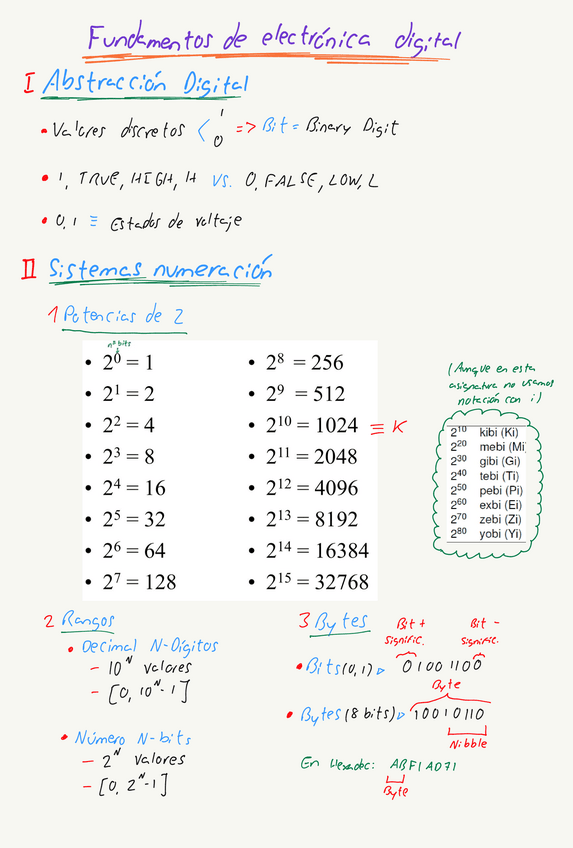 Fundamentos de electrónica digital
I Abstracción Digital
• Valores discretos < 1 0 => Bit = Binary Digit
• 1, TRUE, HIGH, H vs. 0, FALSE, LOW, L
• 0,1 ≡ Estados de voltaje
II Sistemas numeración
1 Potencias de 2
nº bits
• 2⁰ = 1
• 2¹ = 2
• 2² = 4
• 2³ = 8
• 2⁴ = 16
• 2⁵ = 32
• 2⁶ = 64
• 2⁷ = 128
• 2⁸ = 256
• 2⁹ = 512
• 2¹⁰ = 1024 ≡ K
• 2¹¹ = 2048
• 2¹² = 4096
• 2¹³ = 8192
• 2¹⁴ = 16384
• 2¹⁵ = 32768
(Aunque en esta
asignatura no usamos
notación con i)
2¹⁰ kibi (Ki)
2²⁰ mebi (Mi
2³⁰ gibi (Gi)
2⁴⁰ tebi (Ti)
2⁵⁰ pebi (Pi)
2⁶⁰ exbi (Ei)
2⁷⁰ zebi (Zi)
2⁸⁰ yobi (Yi)
2 Rangos
• Decimal N-Dígitos
- 10ᴺ valores
- [0, 10ᴺ-1]
• Número N-bits
- 2ᴺ valores
- [0, 2ᴺ-1]
3 Bytes
Bit +
signific.
Bit -
signific.
• Bits (0,1) ▷ 01001100
Byte
• Bytes (8 bits) ▷ 10010110
Nibble
En Hexadec: ABF1AD71
Byte